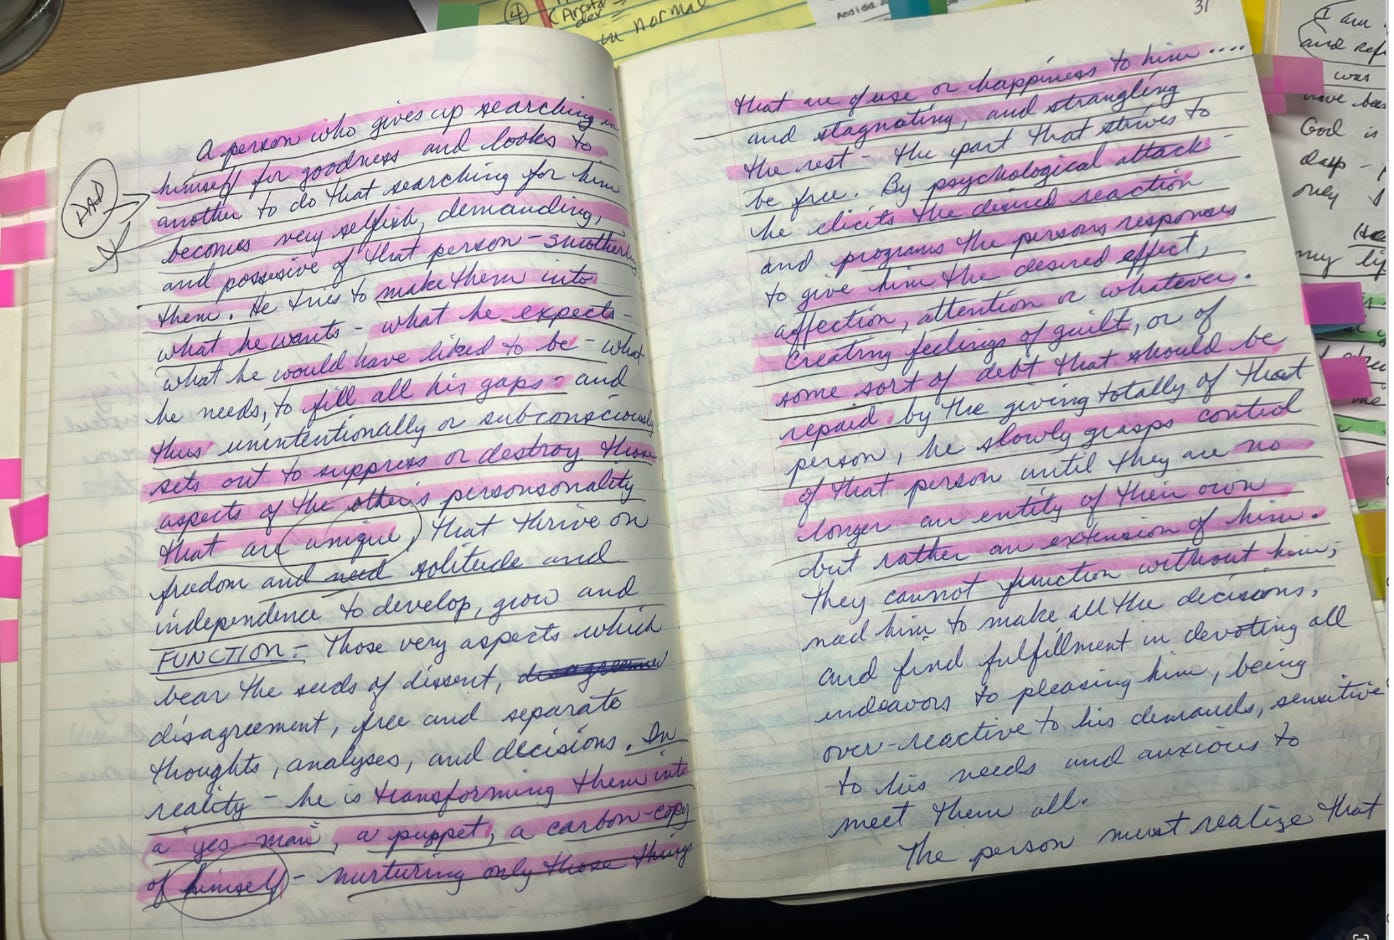 ④
in normal
31
DAD
A person who gives up searching in
himself for goodness and looks to
another to do that searching for him
becomes very selfish, demanding,
and possesive of that person - smothering
them. He tries to make them into
what he wants - what he expects -
what he would have liked to be - what
he needs, to fill all his gaps - and
thus unintentionally or subconsciously
sets out to suppress or destroy those
aspects of the other's personsonality
that are unique, that thrive on
freedom and need solitude and
independence to develop, grow and
FUNCTION. - Those very aspects which
bear the seeds of dissent,
disagreement, free and separate
thoughts, analyses, and decisions. In
reality - he is transforming them into
a "yes man", a puppet, a carbon-copy
of himself - nurturing only those things
that are of use or happiness to him ....
and stagnating, and strangling
the rest - the part that strives to
be free. By psychological attack
he elicits the desired reaction
and programs the persons responses
to give him the desired effect,
affection, attention or whatever.
Creating feelings of guilt, or of
some sort of debt that should be
repaid by the giving totally of that
person, he slowly grasps control
of that person until they are no
longer an entity of their own
but rather an extension of him.
They cannot function without him,
need him to make all the decisions,
and find fulfillment in devoting all
endeavors to pleasing him, being
over-reactive to his demands, sensitive
to his needs and anxious to
meet them all.
The person must realize that
I am
and
was
have
God is
deep -
only
my